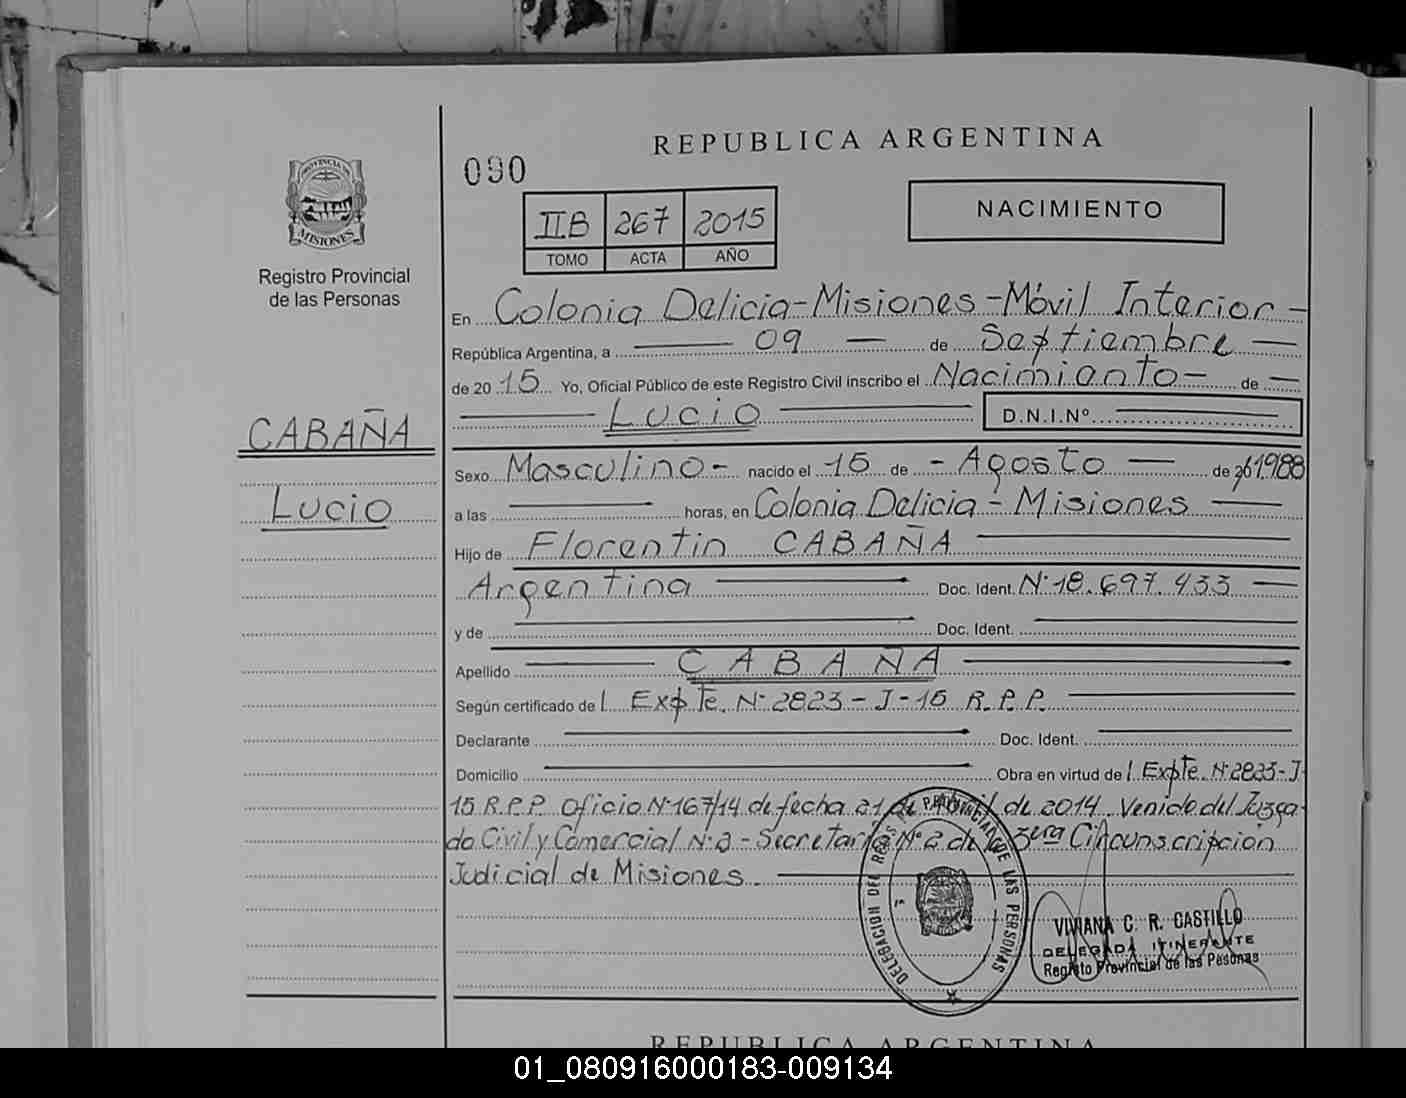 REPUBLICA ARGENTINA
090
PROVINCIA DE
MISIONES
Registro Provincial
de las Personas
IIB 267 2015
TOMO ACTA AÑO
NACIMIENTO
En Colonia Delicia-Misiones-Móvil Interior-
República Argentina, a 09 de Septiembre
de 2015 Yo, Oficial Público de este Registro Civil inscribo el Nacimiento- de
Lucio D.N.I.Nº
CABAÑA
Lucio
Sexo Masculino- nacido el 15 de - Agosto de 1988
a las horas, en Colonia Delicia - Misiones
Hijo de Florentin CABAÑA
Argentina Doc. Ident. Nº 18.697.433
y de Doc. Ident.
Apellido CABAÑA
Según certificado de Expte. Nº 2823-J-15 R.P.P.
Declarante Doc. Ident.
Domicilio Obra en virtud de Expte. Nº 2823-J-
15 R.P.P. Oficio Nº 167/14 de fecha 21 de Abril de 2014. Venido del Juzga-
do Civil y Comercial Nº 2 - Secretaria Nº 2 de la 3era Circunscripción
Judicial de Misiones.
DELEGACION DEL REG. PROVINCIAL DE LAS PERSONAS
VIVIANA C. R. CASTILLO
DELEGADA ITINERANTE
Registo Provincial de las Pesonas
REPUBLICA ARGENTINA
01_080916000183-009134